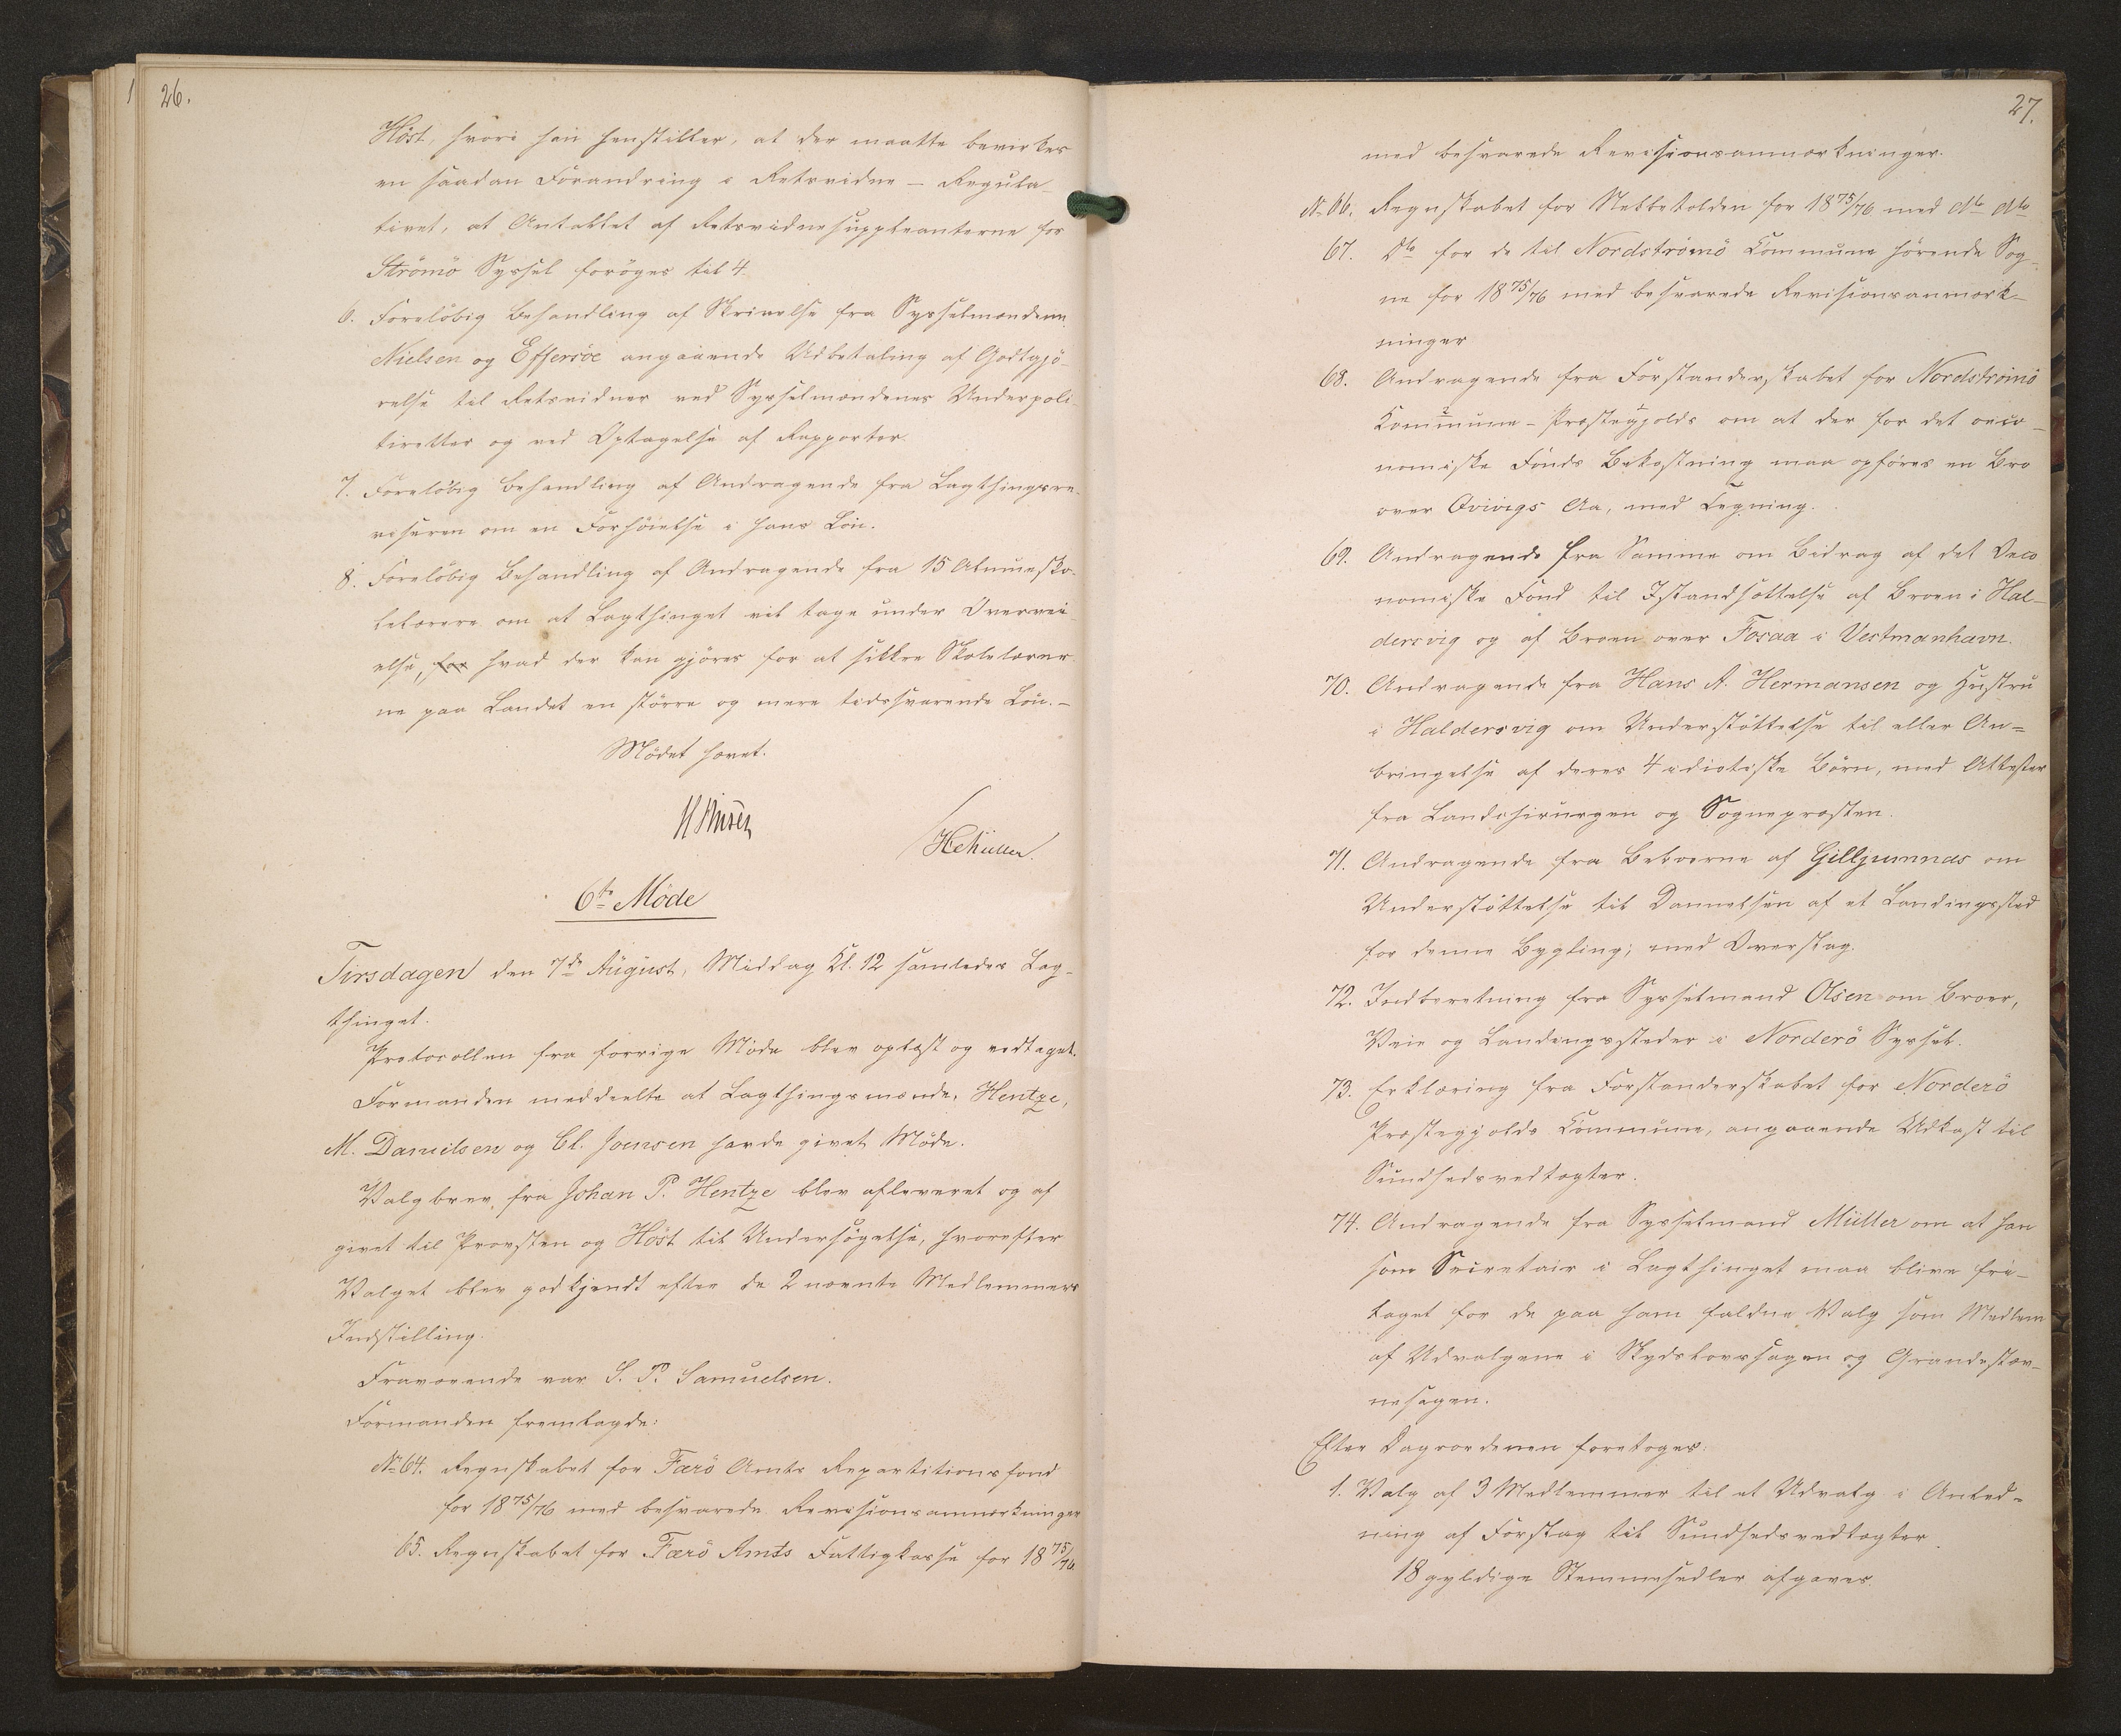 26.
Höst, hvori han henstiller, at der maatte bevirkes
en saadan Forandring i Retsvidne-Regula-
tivet, at Antallet af Retsvidnesuppleanterne for
Strömö Syssel foröges til 4.
6. Forelöbig Behandling af Skrivelse fra Sysselmændene
Nielsen og Effersöe angaaende Udbetaling af Godtgjö-
relse til Retsvidner ved Sysselmændenes Underpoli-
tiretter og ved Optagelse af Rapporter.
7. Forelöbig Behandling af Andragende fra Lagthingsre-
visoren om en Forhöielse i hans Lön.
8. Forelöbig Behandling af Andragende fra 15 Almuesko-
lelærere om at Lagthinget vil tage under Overvei-
else, for hvad der kan gjöres for at sikkre Skolelærer-
ne paa Landet en större og mere tidssvarende Lön.-
Mödet hævet.
HMüller.
6te Möde
Tirsdagen den 7de August, Middag Kl. 12 samledes Lag-
thinget.
Protocollen fra forrige Möde blev oplæst og vedtaget.
Formanden meddeelte at Lagthingsmænd. Hentze,
M. Danielsen og Cl. Joensen havde givet Möde.
Valgbrev fra Johan P. Hentze blev afleveret og af
givet til Provsten og Höst til Undersögelse, hvorefter
Valget blev godkjendt efter de 2 nævnte Medlemmers
Indstilling.
Fraværende var S. P. Samuelsen.
Formanden fremlagde:
No 64. Regnskabet for Færö Amts Repartitionsfond
for 1875/76 med besvarede Revisionsanmærkninger
65. Regnskabet for Færö Amts Fattigkasse for 1875/76
27.
med besvarede Revisionsanmærkninger.
No 66. Regnskabet for Sletbetolden for 1875/76 med dto dto
67. Dto for de til Nordströmö Commune hörende Sog-
ne for 1875/76 med besvarede Revisionsanmærk-
ninger
68. Andragende fra Forstanderskabet for Nordströmö
2 1
Kommune-Præstegjelds om at der for det oeco-
nomiske Fonds Bekostning maa opföres en Bro
over Qvivigs Aa, med Tegning.
69. Andragende fra Samme om Bidrag af det Oeco
nomiske Fond til Istandsættelse af Broen i Hal-
dersvig og af Broen over Fosaa i Vestmanhavn.
70. Andragende fra Hans A. Hermansen og Hustru
i Haldersvig om Understöttelse til eller An-
bringelse af deres 4 idiotiske Börn, med Attester
fra Landchirurgen og Sognepræsten.
71. Andragende fra Beboerne af Gilljumnæs om
Understöttelse til Dannelsen af et Landingssted
for denne Bygling; med Overslag.
72. Indberetning fra Sysselmand Olsen om Broer,
Veie og Landingssteder i Norderö Syssel.
73. Erklæring fra Forstanderskabet for Norderö
Præstegjelds Commune, angaaende Udkast til
Sundhedsvedtægter.
74. Andragende fra Sysselmand Müller om at han
som Secretair i Lagthinget maa blive fri-
taget for de paa ham faldne Valg som Medlem
af Udvalgene i Skydslovssagen og Grandestæv-
nesagen.
Efter Dagsordenen foretoges:
1. Valg af 3 Medlemmer til et Udvalg i Anled-
ning af Forslag til Sundhedsvedtægter.
18 gyldige Stemmesedler afgaves.